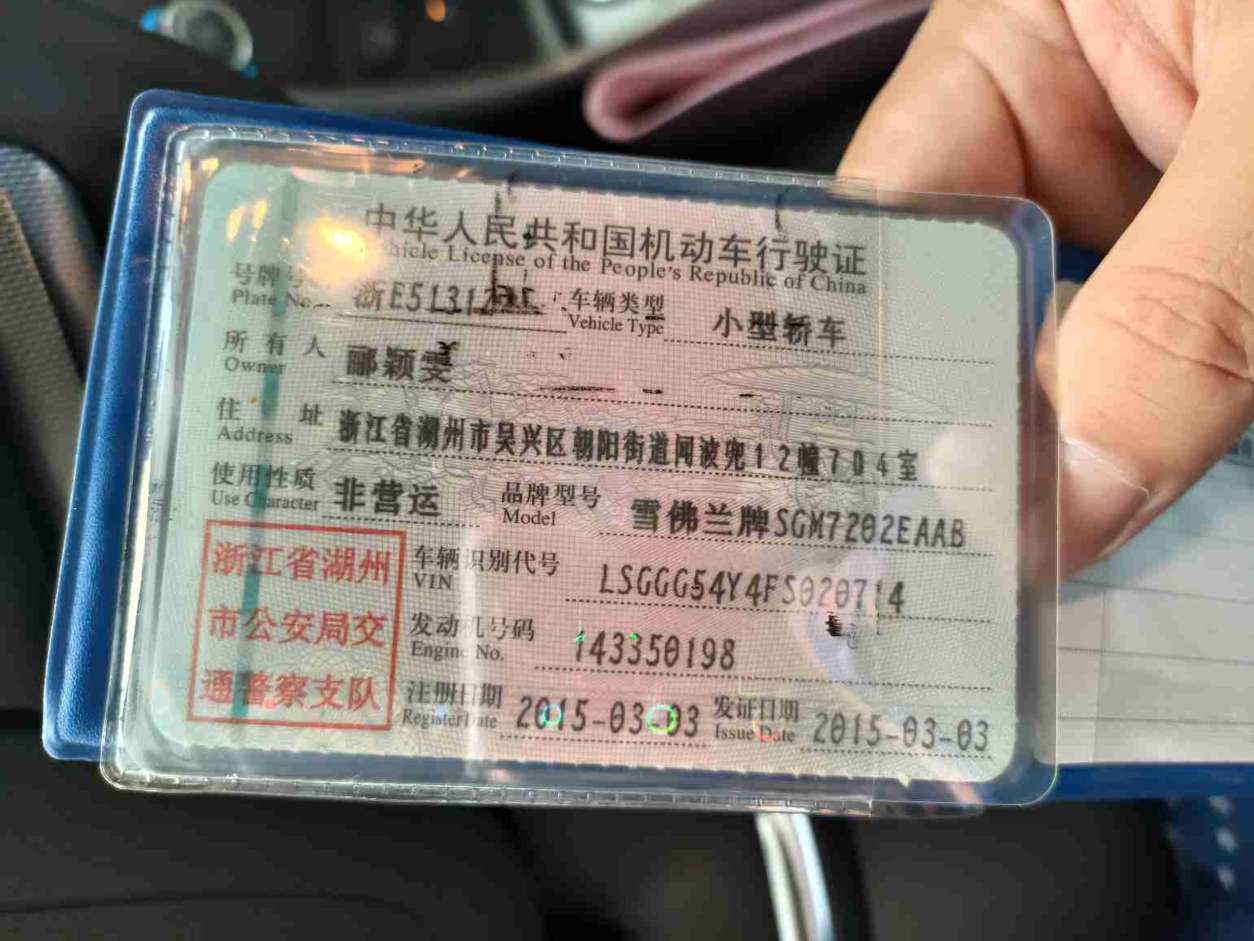 中华人民共和国机动车行驶证
Vehicle License of the People's Republic of China
号牌号 浙E5L31 车辆类型 小型轿车
Plate No. Vehicle Type
所有人 郦颖雯
Owner
住址 浙江省湖州市吴兴区朝阳街道闻波兜12幢704室
Address
使用性质 非营运 品牌型号 雪佛兰牌SGM7202EAAB
Use Character Model
浙江省湖州
市公安局交
通警察支队
车辆识别代号 LSGGG54Y4FS020714
VIN
发动机号码 143350198
Engine No.
注册日期 2015-03-03 发证日期 2015-03-03
Register Date Issue Date